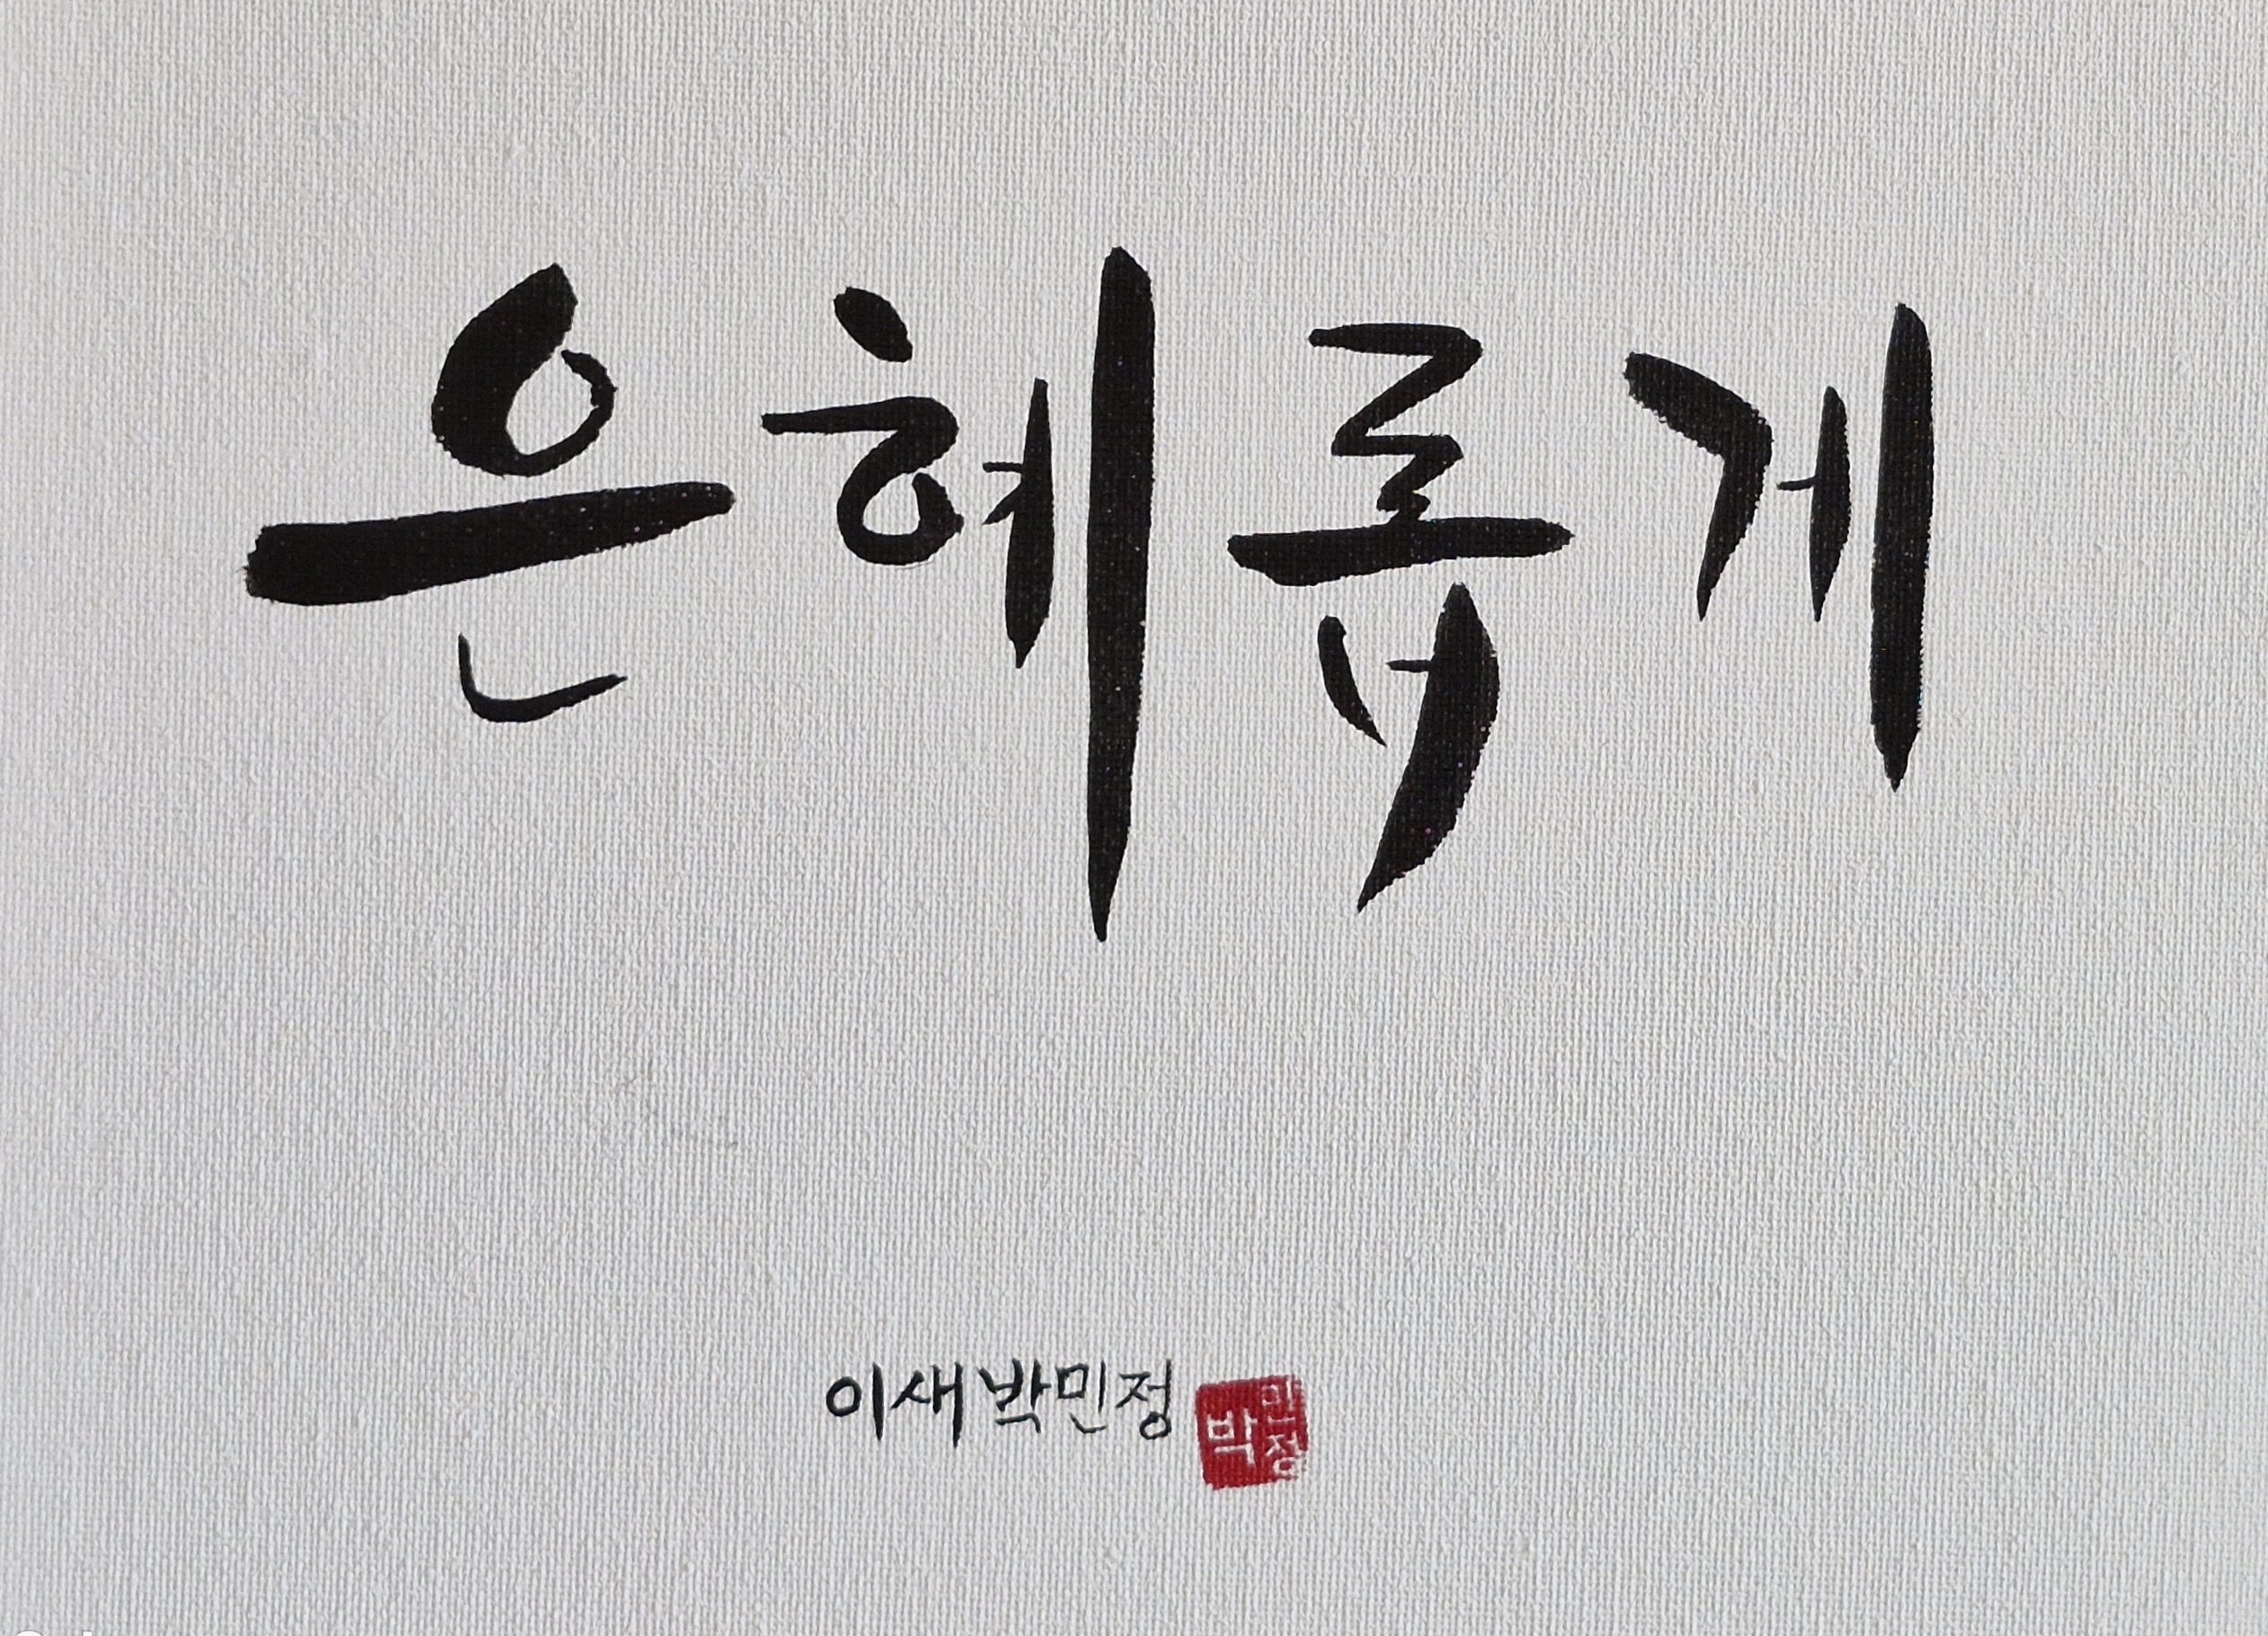 은혜롭게
이새 박민정
박민정